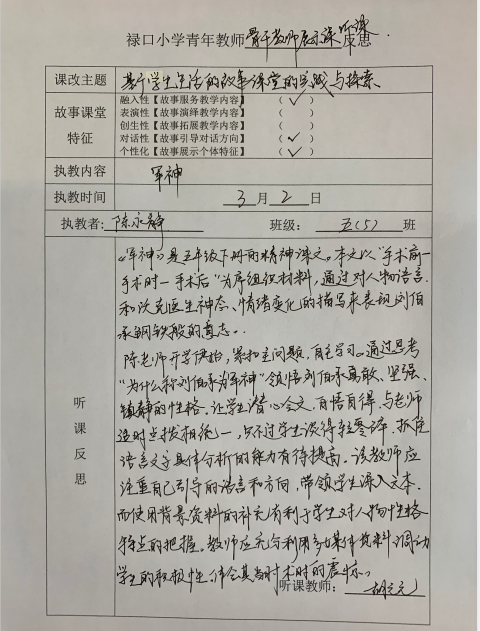 禄口小学青年教师骨干教师展示课听课反思
课改主题 基于学生生活的故事课堂的实践与探索
故事课堂特征
融入性【故事服务教学内容】 （ ✓ ）
表演性【故事演绎教学内容】 （ ）
创生性【故事拓展教学内容】 （ ）
对话性【故事引导对话方向】 （ ✓ ）
个性化【故事展示个体特征】 （ ✓ ）
执教内容 军神
执教时间 3 月 2 日
执教者: 陈永静 班级: 五(5) 班
听课反思
《军神》是五年级下册的精神课文。本文以"手术前—
手术时—手术后"为序组织材料，通过对人物语言
和沃克医生神态、情绪变化的描写来表现刘伯
承钢铁般的意志。
陈老师开学伊始，紧扣主问题，自主学习。通过思考
"为什么称刘伯承为军神"领悟刘伯承勇敢、坚强、
镇静的性格。让学生潜心会文，自悟自得，与老师
适时点拨相统一，只不过学生谈得较零碎，抓住
语言文字具体分析的能力有待提高。该教师应
注重自己引导的语言和方向，带领学生深入文本。
而使用背景资料的补充有利于学生对人物性格
特点的把握。教师应充分利用多媒体资料，调动
学生的积极性，体会其当时术时的震惊。
听课教师：胡元元